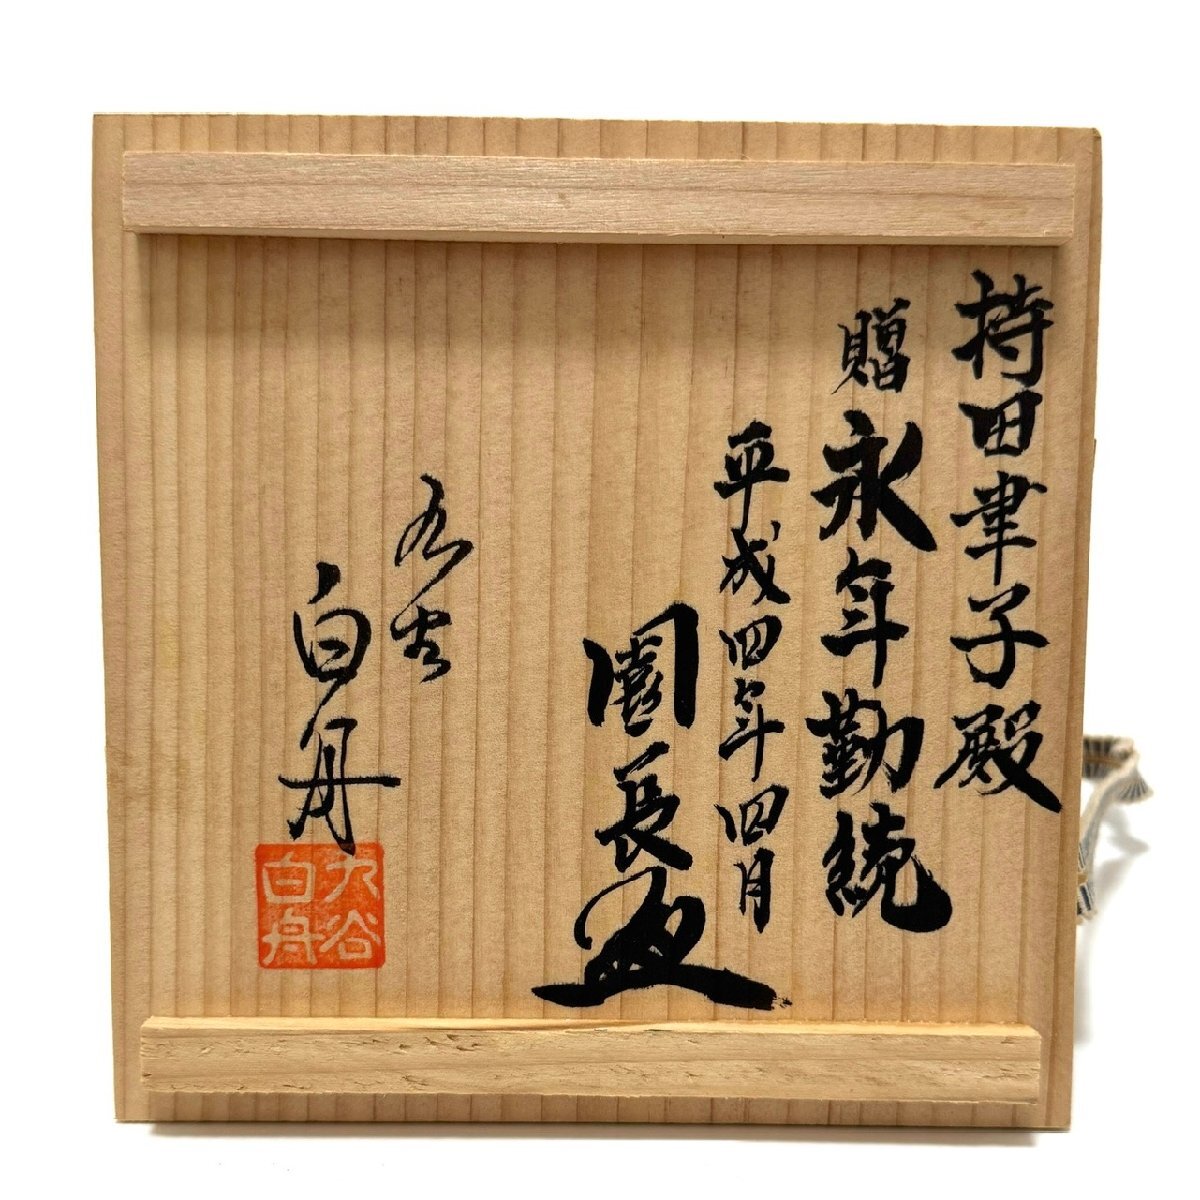 持田聿子殿
贈 永年勤続
平成四年四月
園長
九谷
白舟
九谷
白舟